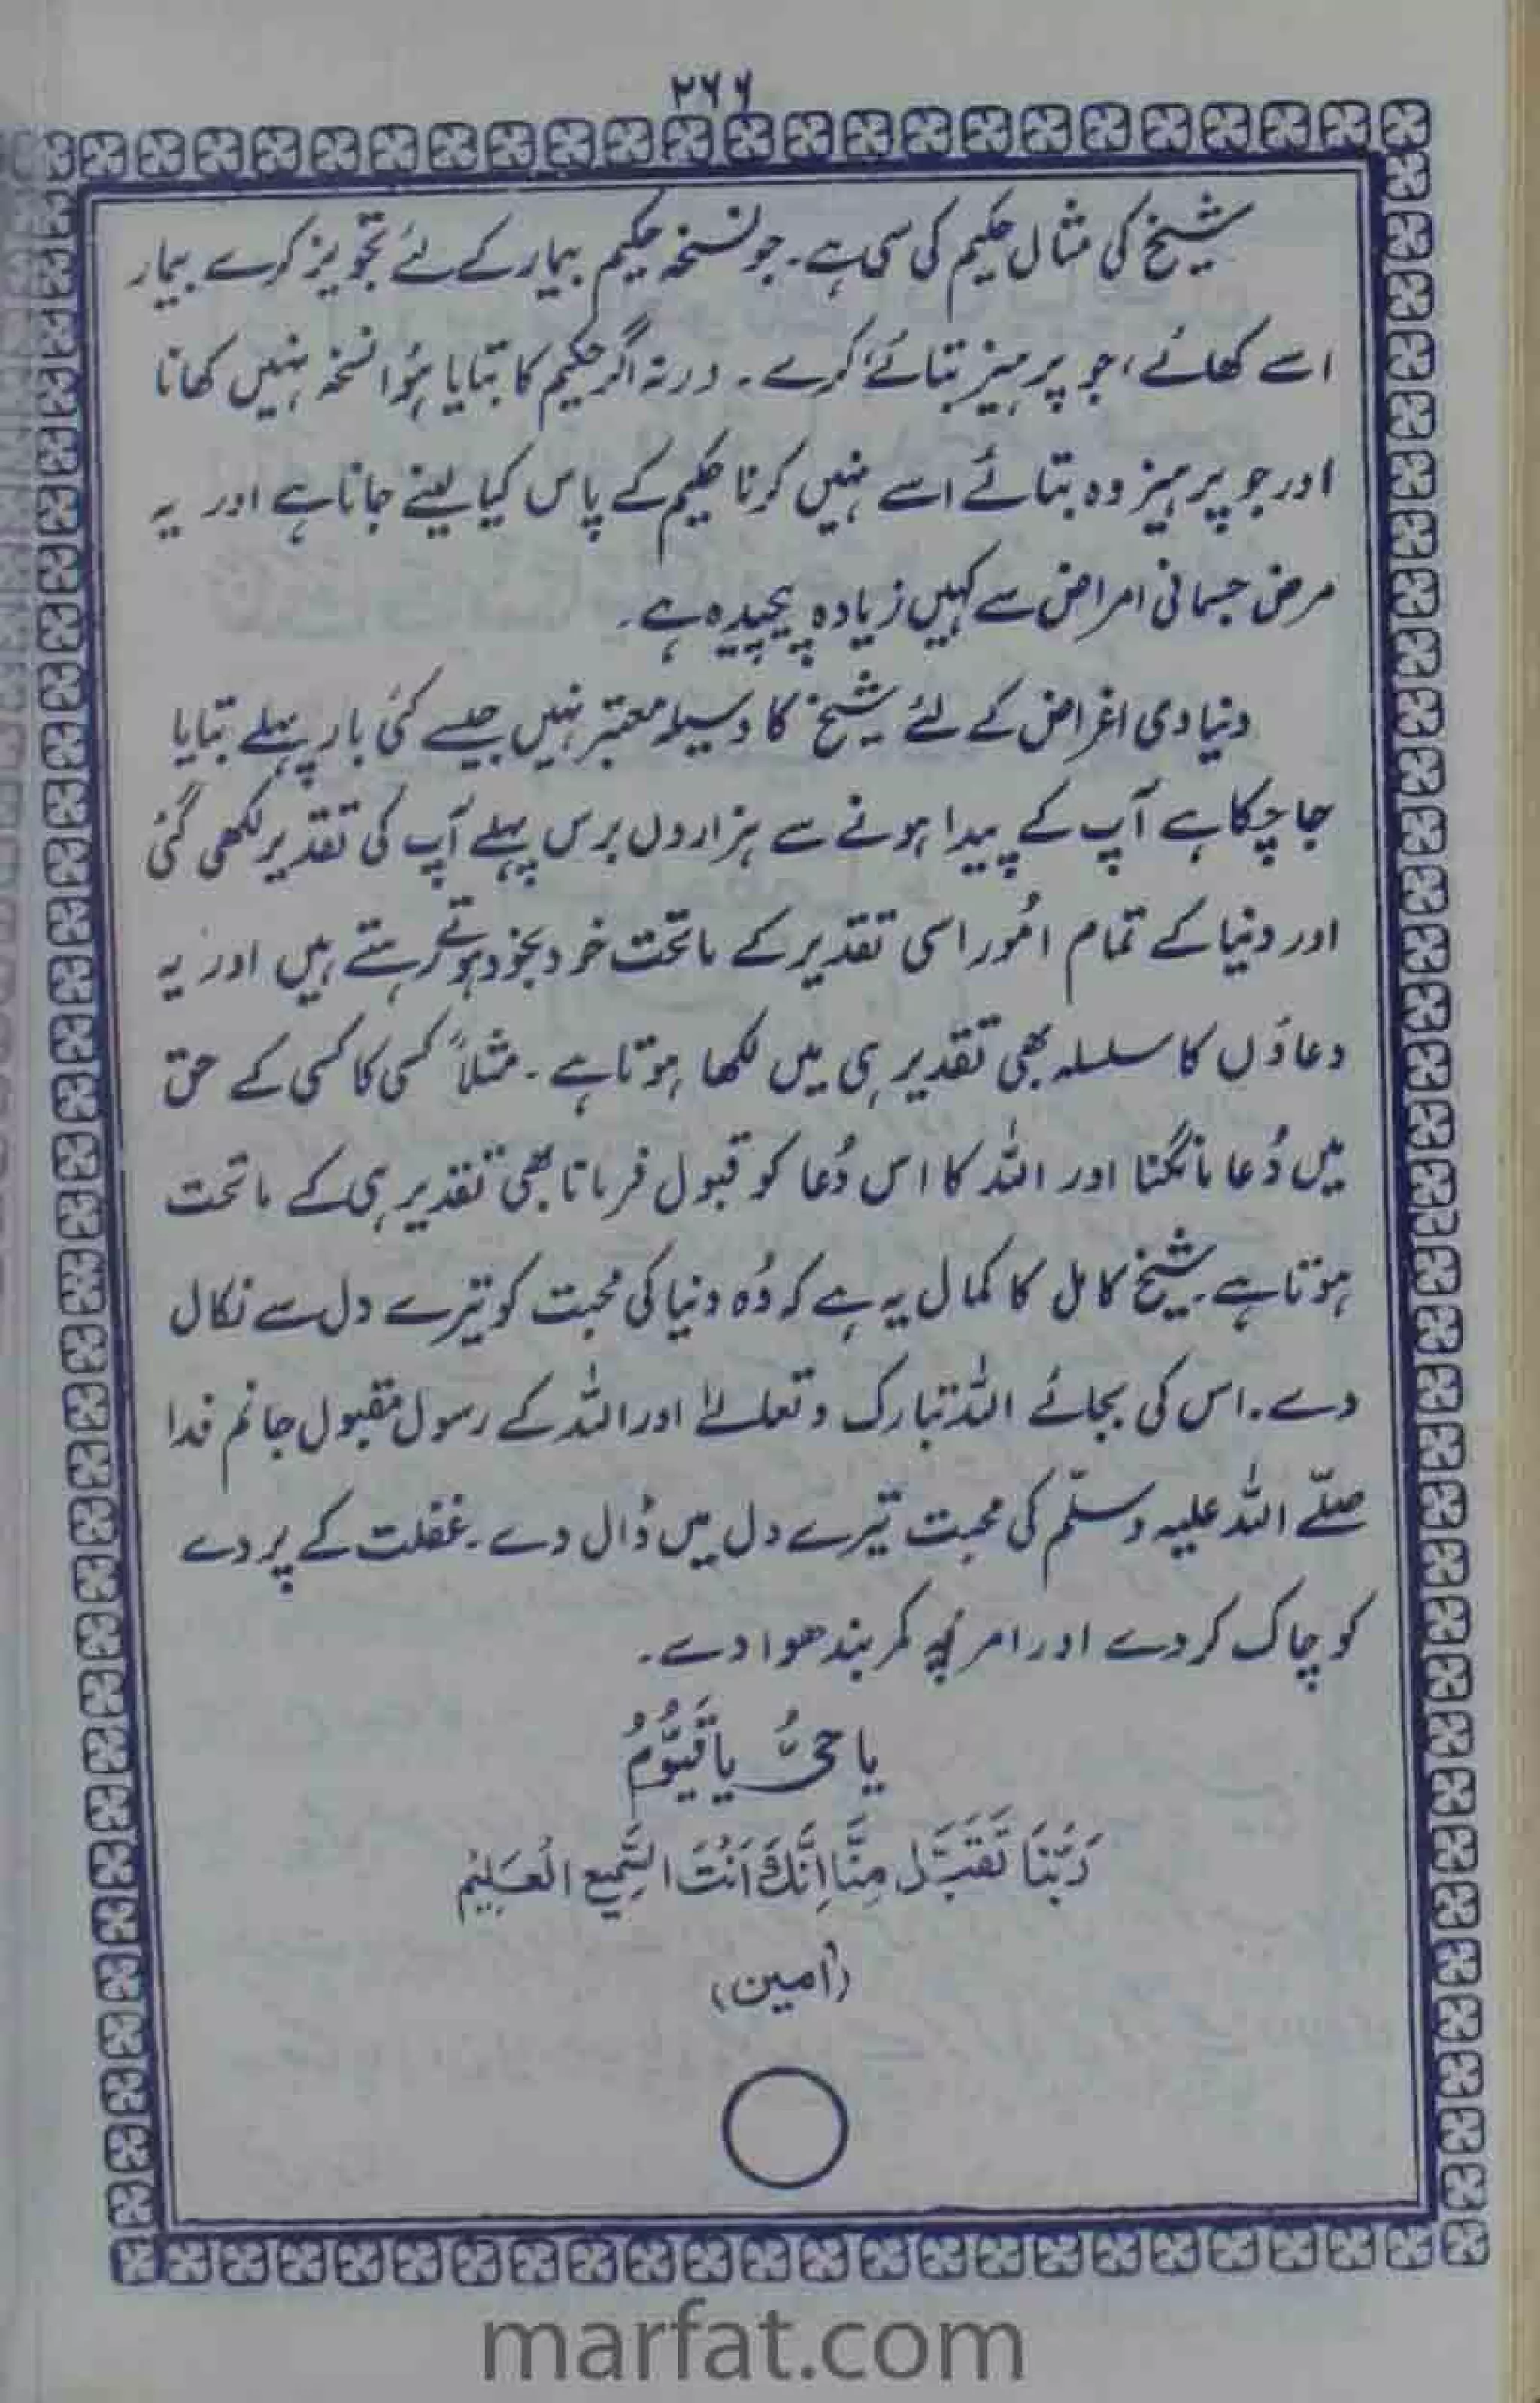 ۲۶۶
شیخ کی مثال حکیم کی سی ہے۔ جو نسخہ حکیم بیمار کے لئے تجویز کرے بیمار
اسے کھائے، جو پرہیز بتائے کرے۔ ورنہ اگر حکیم کا بتایا ہُوا نسخہ نہیں کھانا
اور جو پرہیز وہ بتائے اسے نہیں کرنا حکیم کے پاس کیا لینے جانا ہے اور یہ
مرض جسمانی امراض سے کہیں زیادہ پیچیدہ ہے۔
دنیاوی اغراض کے لئے شیخ کا وسیلہ معتبر نہیں جیسے کئی بار پہلے بتایا
جا چکا ہے آپ کے پیدا ہونے سے ہزاروں برس پہلے آپ کی تقدیر لکھی گئی
اور دنیا کے تمام امُور اسی تقدیر کے ماتحت خود بخود ہوتے رہتے ہیں اور یہ
دعاؤں کا سلسلہ بھی تقدیر ہی میں لکھا ہوتا ہے۔ مثلاً کسی کا کسی کے حق
میں دُعا مانگنا اور اللہ کا اس دُعا کو قبول فرمانا بھی تقدیر ہی کے ماتحت
ہوتا ہے۔ شیخ کامل کا کمال یہ ہے کہ وُہ دنیا کی محبت کو تیرے دل سے نکال
دے۔ اس کی بجائے اللہ تبارک و تعالےٰ اور اللہ کے رسول مقبول جانم فدا
صلّے اللہ علیہ وسلّم کی محبت تیرے دل میں ڈال دے۔ غفلت کے پردے
کو چاک کر دے اور امر پہ کمر بندھوا دے۔
یا حیُّ یا قَیُّوْمُ
رَبَّنَا تَقَبَّل مِنَّا اِنَّكَ اَنْتَ السَّمِیع الْعَلِیْم
(اٰمین)
marfat.com